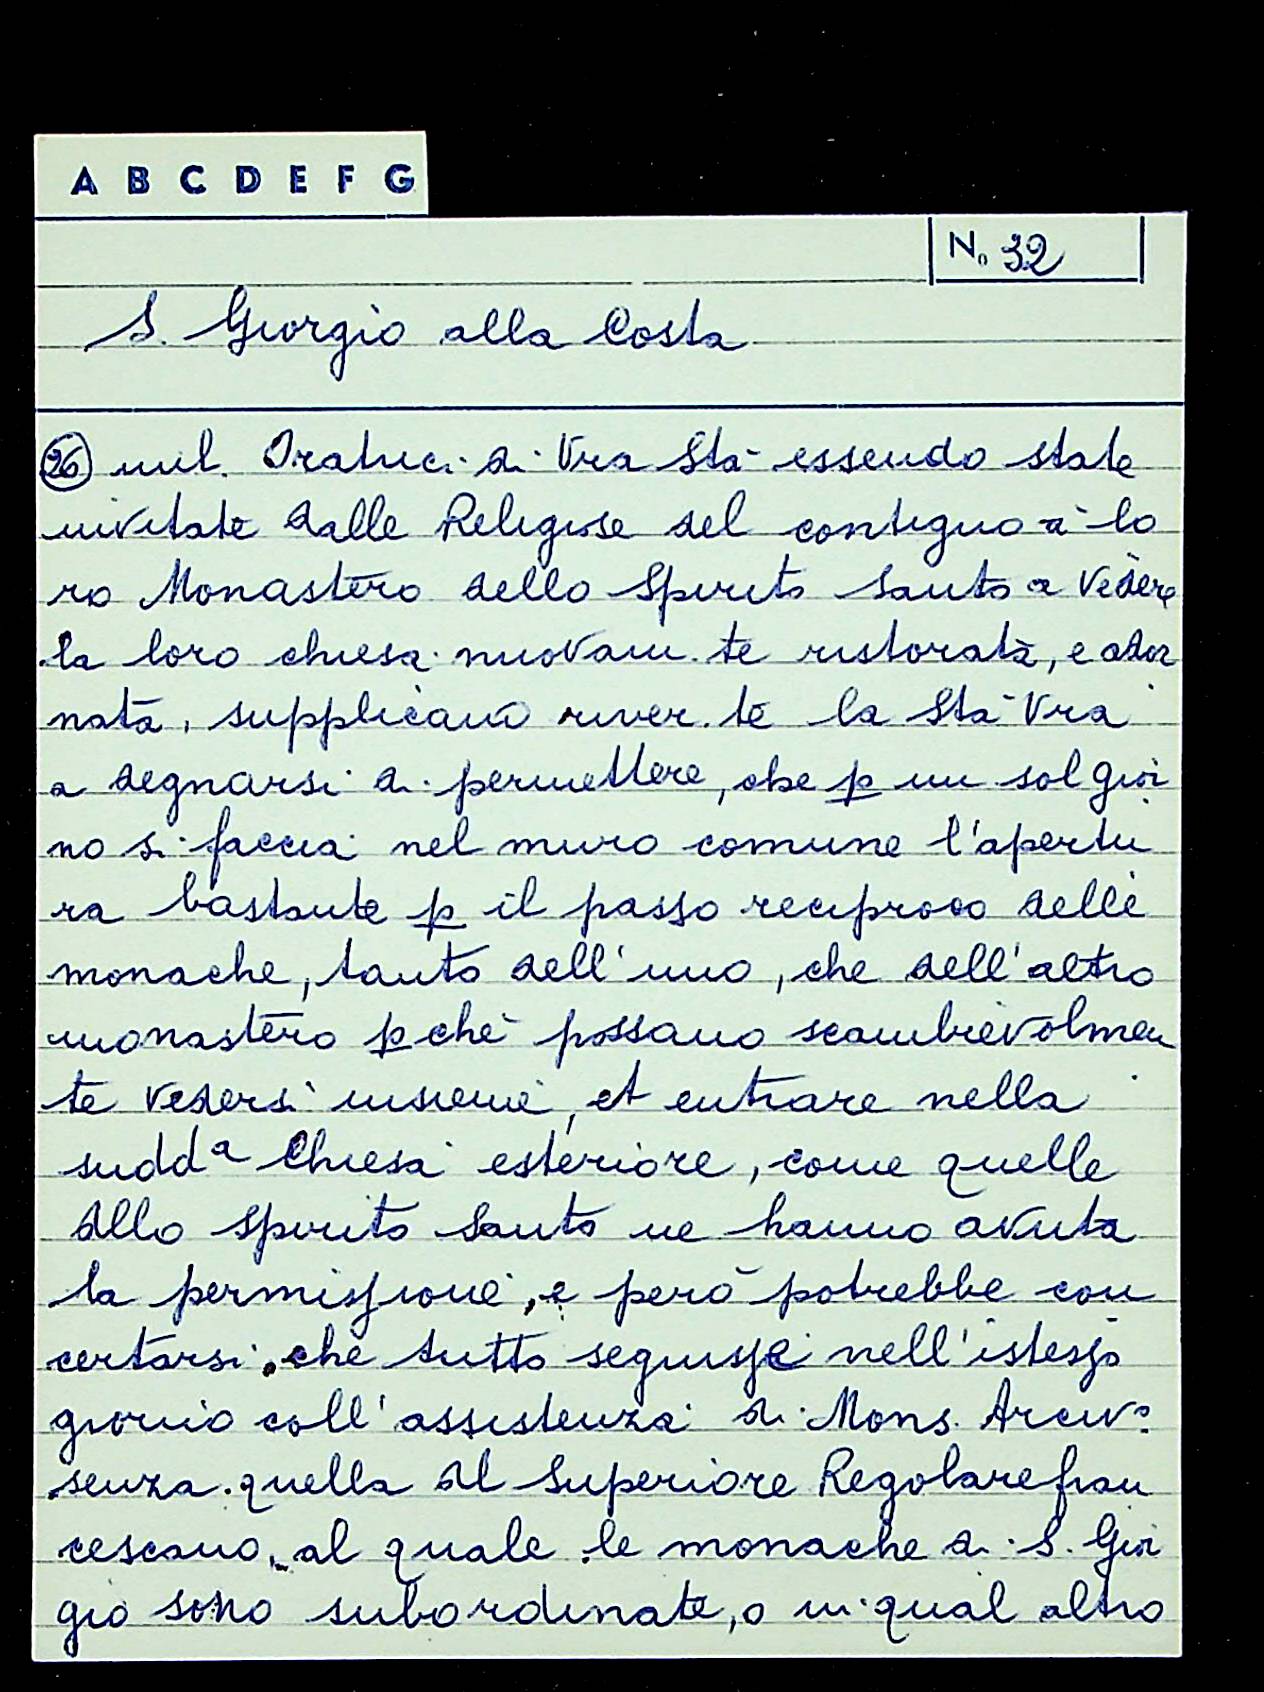 A B C D E F G
No 32
S. Giorgio alla Costa
26 umil. Oratrici di Vra Stà essendo state
invitate dalle Religiose del contiguo à lo
ro Monastero dello Spirito Santo a vedere
la loro chiesa nuovam.te ristorata, e ador
nata, supplicano river.te la Stà Vra
a degnarsi di permettere, che p un sol gior
no si faccia nel muro comune l'apertu
ra bastante p il passo reciproco delle
monache, tanto dell'uno, che dell'altro
monastero pchè possano scambievolmen
te vedersi insieme, et entrare nella
sudda Chiesa esteriore, come quelle
dllo Spirito Santo ne hanno avuta
la permissione, e però potrebbe con
certarsi, che tutto seguisse nell'istesso
giorno coll'assistenza di Mons. Arciv:o
senza quella dl Superiore Regolare fran
cescano, al quale le monache di S. Gior
gio sono subordinate, o in qual altro